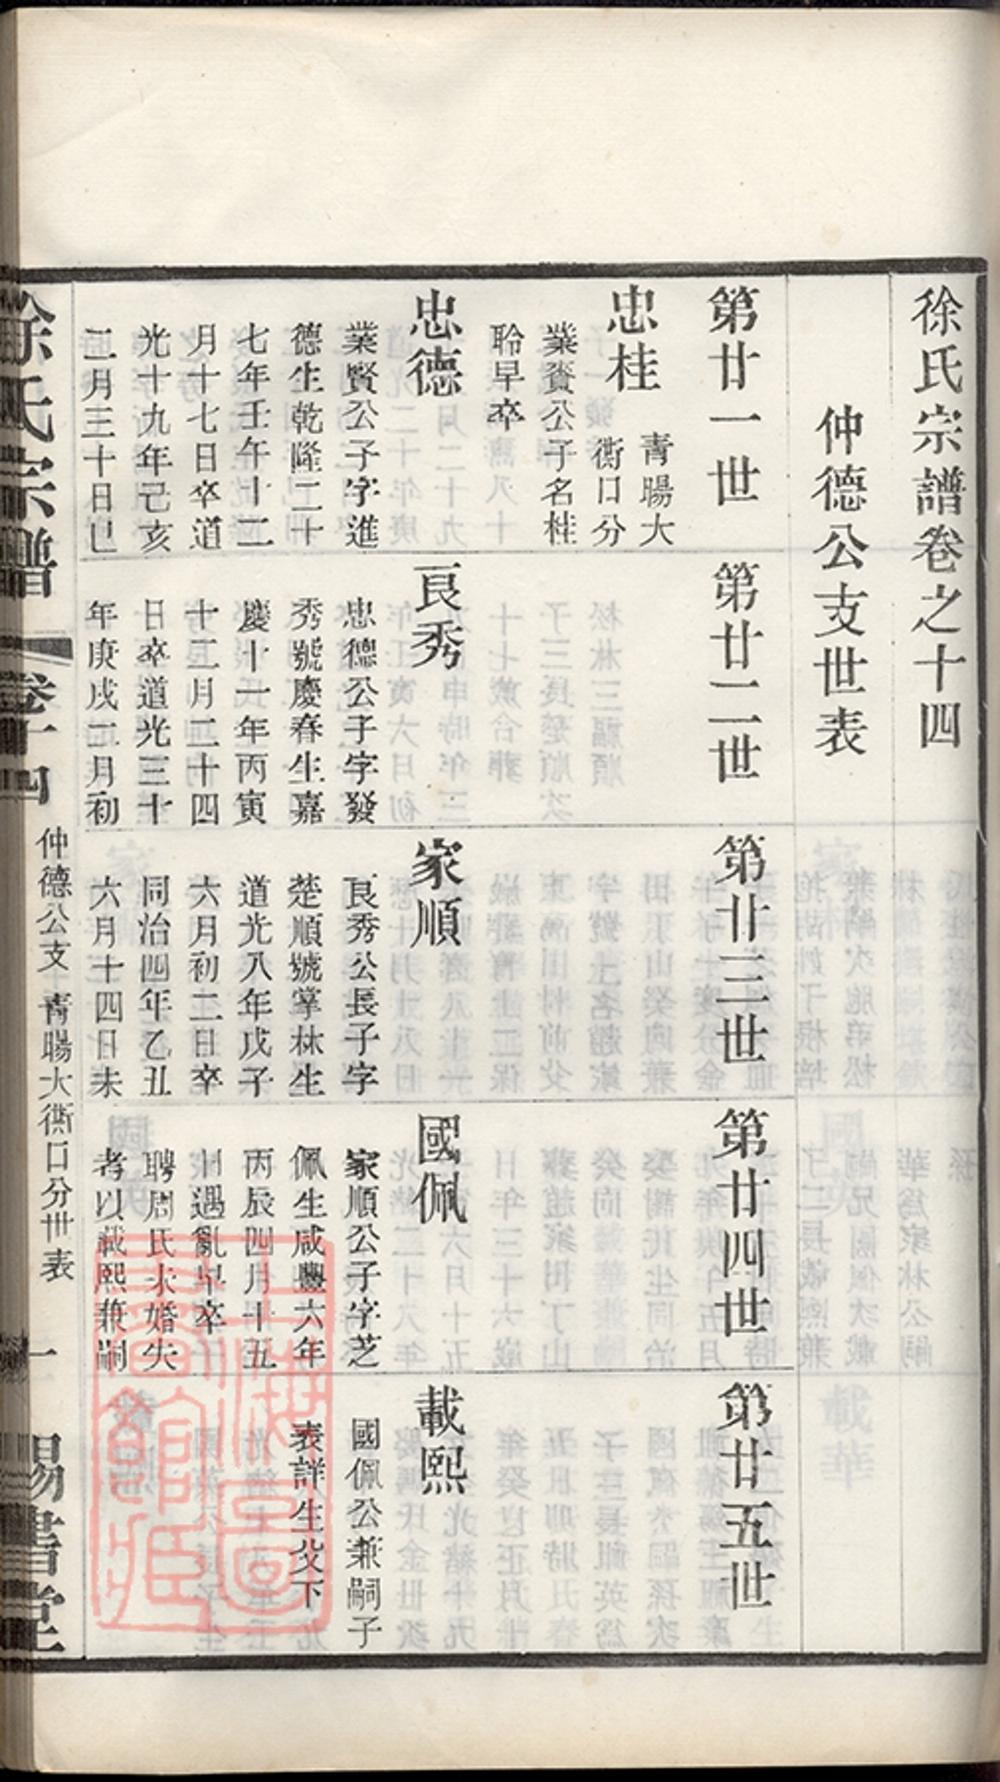 徐氏宗譜卷之十四
仲德公支世表
第廿一世
忠桂
青暘大
衖口分
業賚公子名桂
聆早卒
忠德
業賢公子字進
德生乾隆二十
七年壬午十二
月十七日卒道
光十九年己亥
二月三十日巳
第廿二世
良秀
忠德公子字發
秀號慶春生嘉
慶十一年丙寅
十二月二十四
日卒道光三十
年庚戌二月初
第廿三世
家順
良秀公長子字
楚順號掌林生
道光八年戊子
六月初二日卒
同治四年乙丑
六月十四日未
第廿四世
國佩
家順公子字芝
佩生咸豐六年
丙辰四月十五
日遇亂早卒
聘周氏未婚失
考以載熙兼嗣
第廿五世
載熙
國佩公兼嗣子
表詳生父下
徐氏宗譜
卷十四
仲德公支 青暘大衖口分世表
一
錫書堂
上海圖書館藏